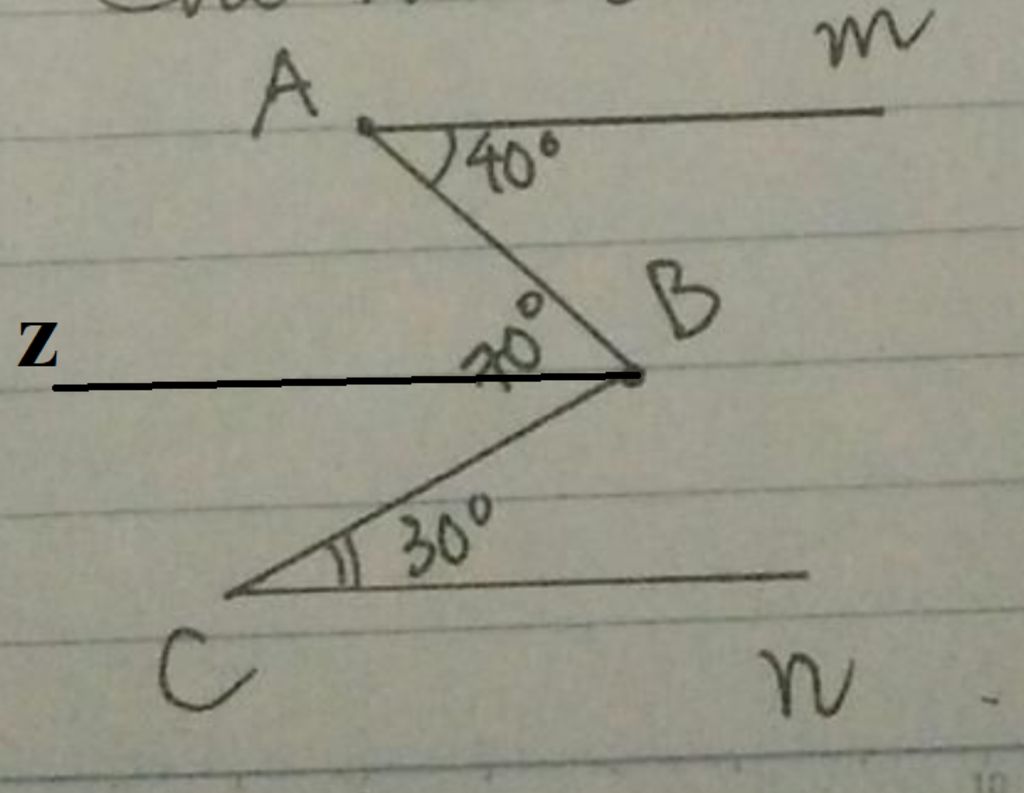 m
A
40°
B
70°
Z
30°
C
n